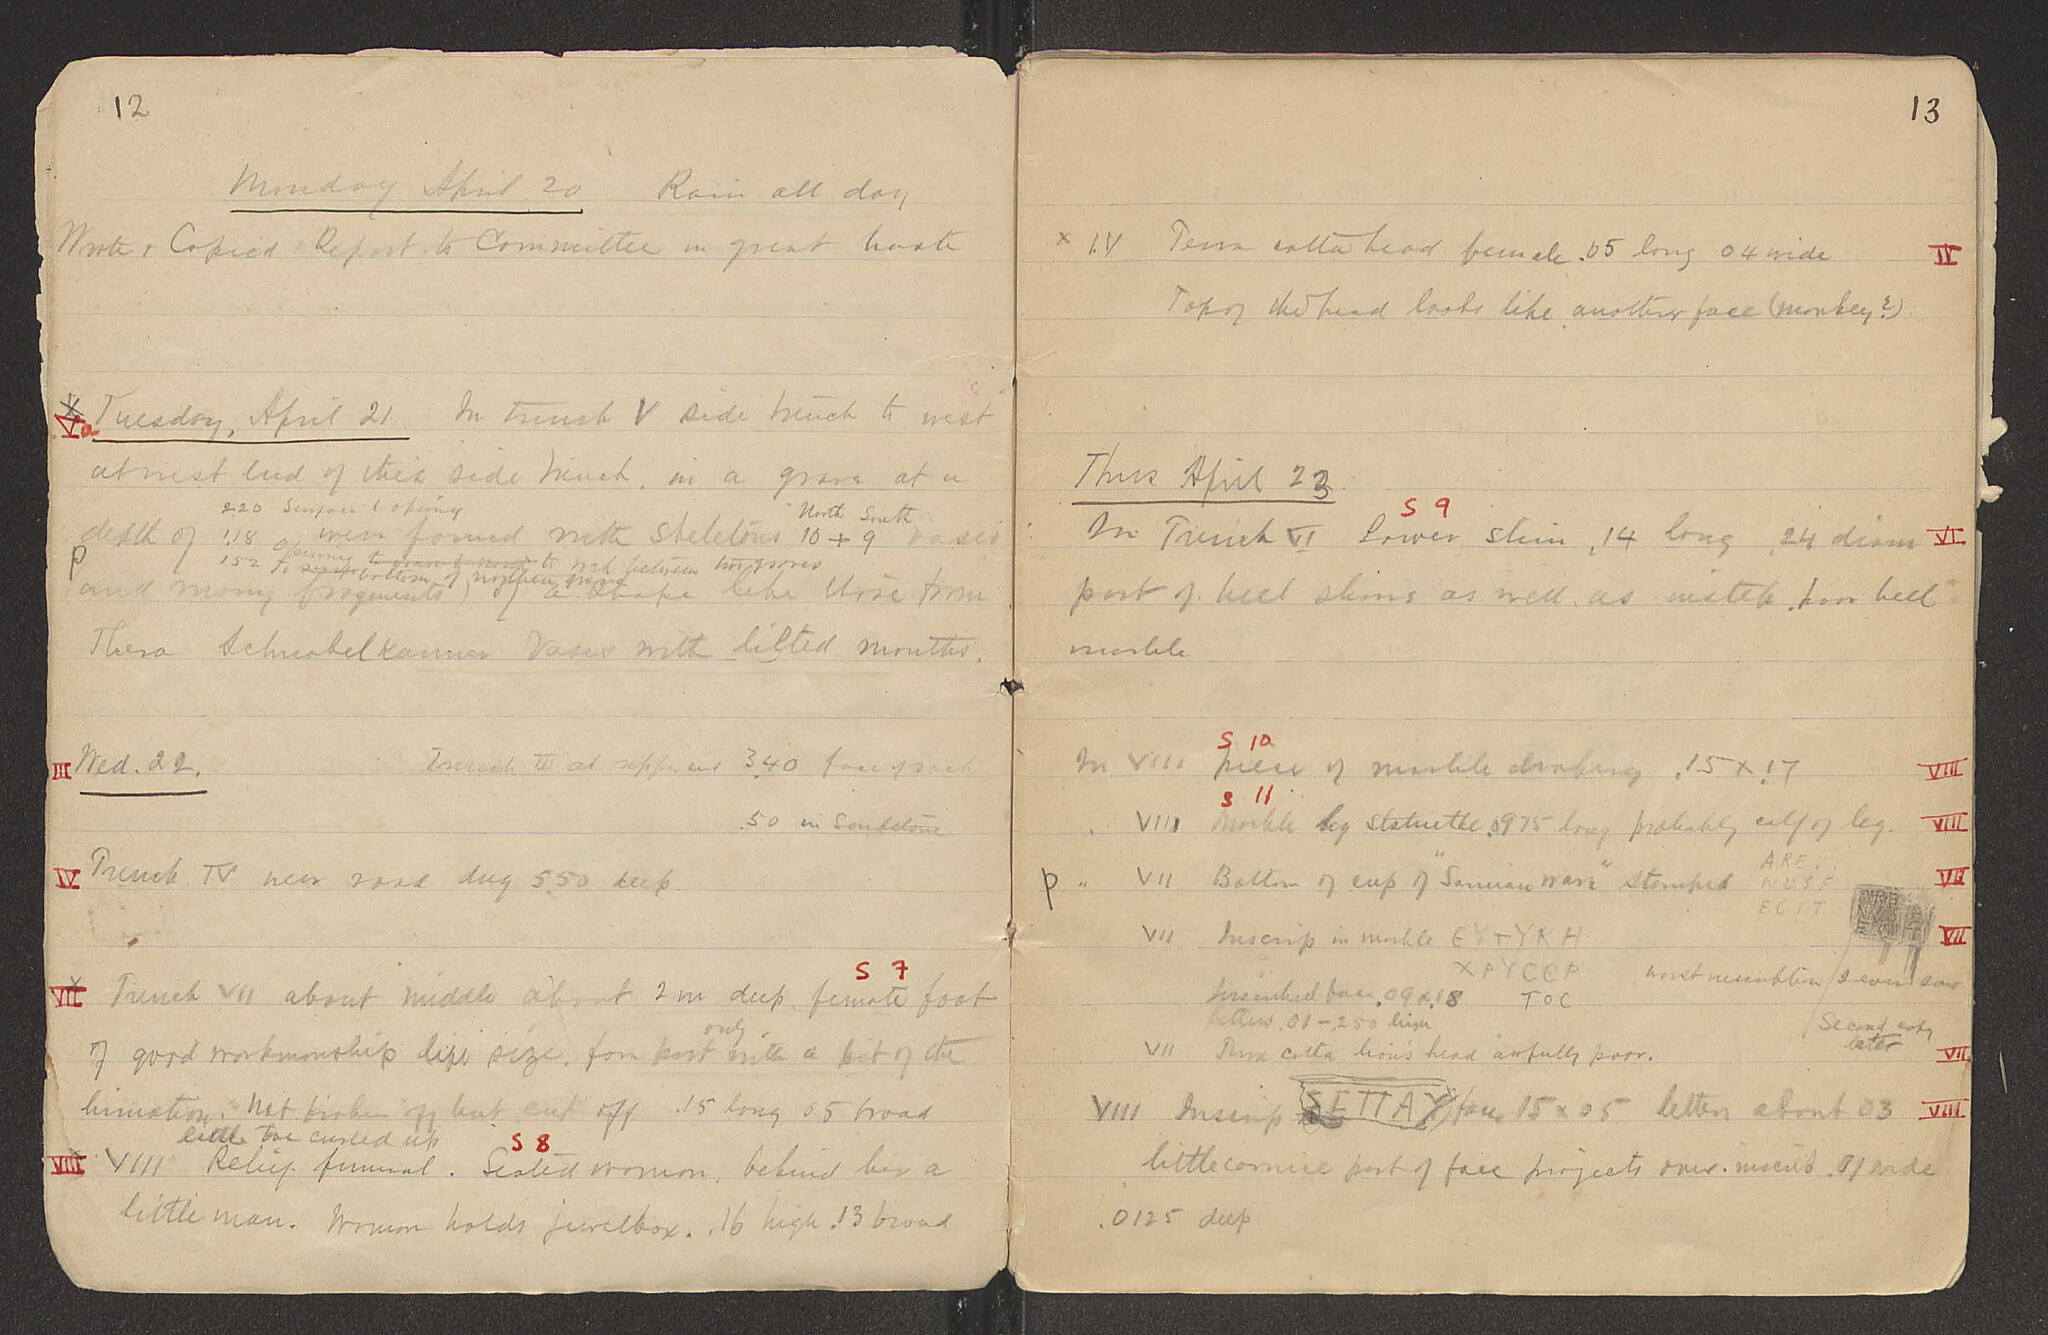 12
Monday April 20 Rain all day
Wrote & Copied Report to Committee in great haste
X
Va Tuesday, April 21 In trench V side trench to west
at west end of this side trench, in a grave at a
220 Surface to opening North South
depth of 1.18 were found with skeletons 10 + 9 vases
p 152 to rock between two graves
bottom of northern grave
and many fragments) of a shape like those from
Thera Schnabelkannen Vases with lifted mouths.
III Wed. 22. Trench III at upper end 3.40 face of rock
.50 in Sandstone
IV Trench IV near road dug 5.50 deep
S 7
VII x Trench VII about middle about 2 m deep female foot
only
of good workmanship life size. fore part with a bit of the
himation. Not broken off but cut off .15 long 05 broad
little toe curled up
S 8
VIII VIII Relief funeral. Seated woman, behind her a
little man. Woman holds jewelbox. .16 high .13 broad
13
x IV Terra cotta head female .05 long 04 wide IV
Top of the head looks like another face (monkey?)
Thurs April 23
S 9
In Trench VI Lower shin .14 long .24 diam VI
part of heel shows as well as instep. poor heel
marble
S 10
In VIII piece of marble drapery .15 x .17 VIII
S 11
" VIII Marble leg statuette .0975 long probably calf of leg. VIII
ARE
p " VII Bottom of cup of "Samian ware" stamped NUSF VII
ECIT
VII Inscrip in marble EYTYKH VII
XPYCEP worst inscription I ever saw
Inscribed face .09 x .18 TOC
letters .01 - .250 high
Second copy
later
VII Terra cotta lion's head awfully poor. VII
VIII Inscrip SETTAY face 15 x 05 letters about 03 VIII
little cornice part of face projects over inscrip. .01 wide
.0125 deep